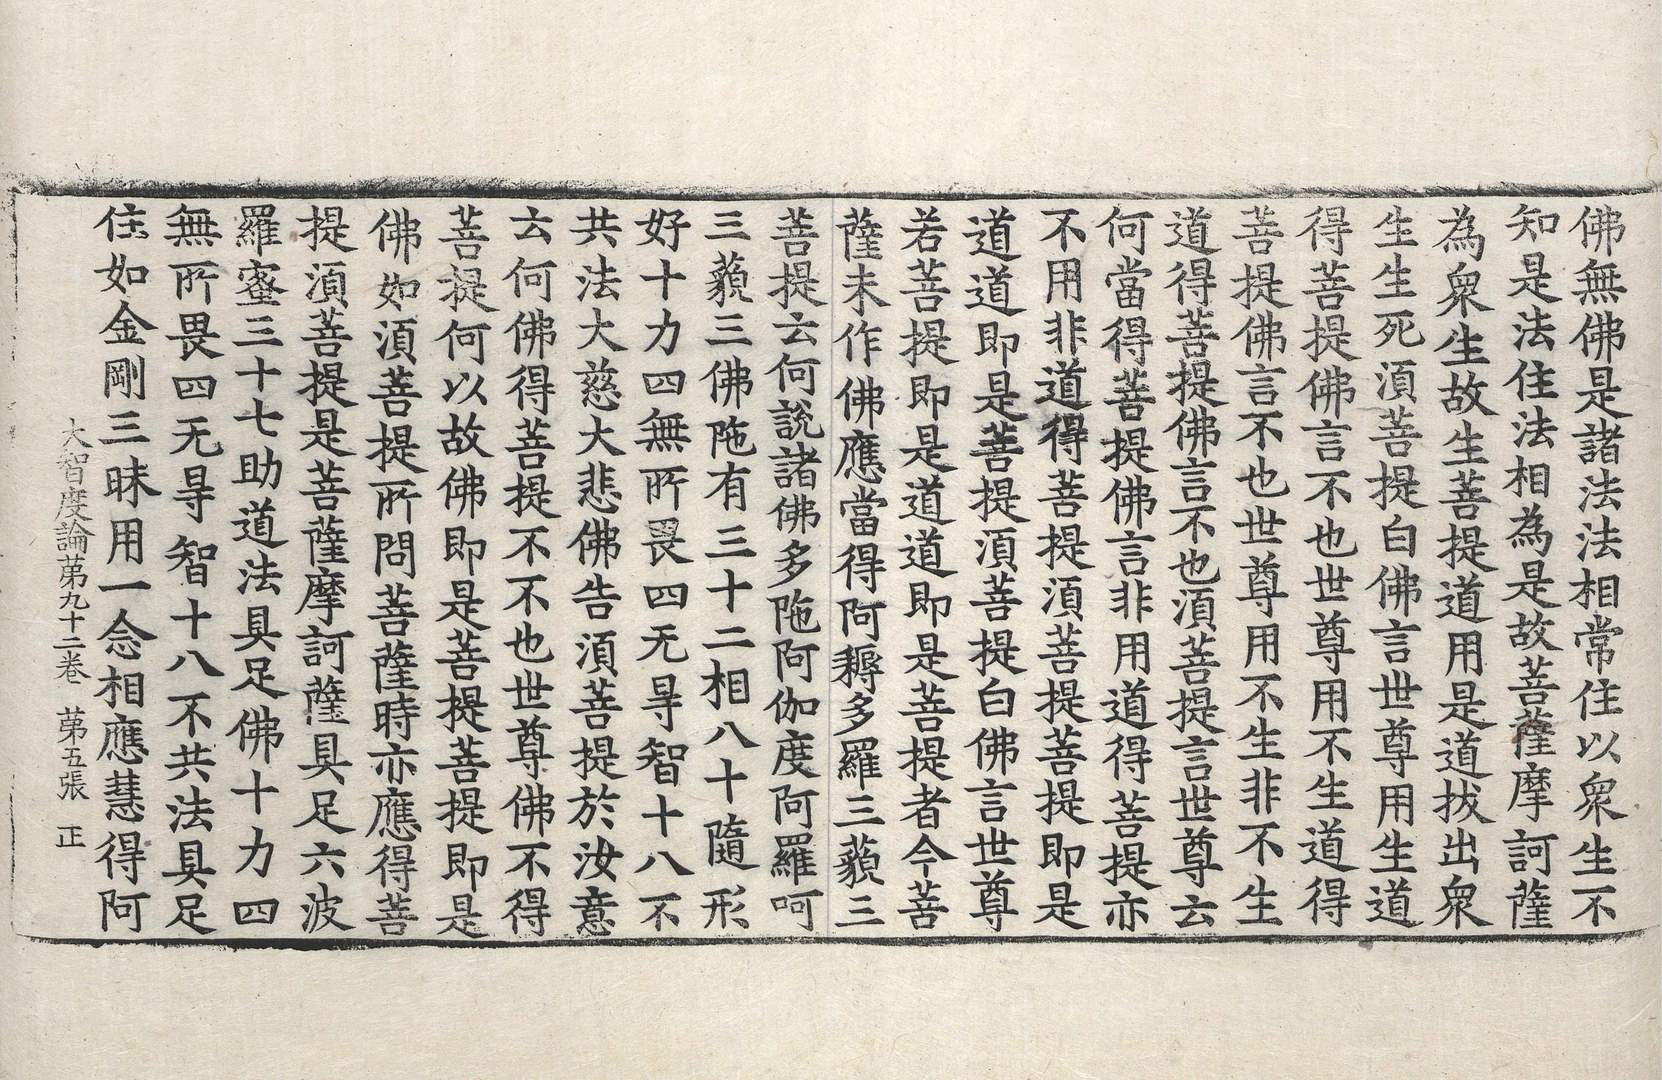 佛無佛是諸法法相常住以衆生不
知是法住法相為是故菩薩摩訶薩
為衆生故生菩提道用是道拔出衆
生生死湏菩提白佛言世尊用生道
得菩提佛言不也世尊用不生道得
菩提佛言不也世尊用不生非不生
道得菩提佛言不也湏菩提言世尊云
何當得菩提佛言非用道得菩提亦
不用非道得菩提湏菩提菩提即是
道道即是菩提湏菩提白佛言世尊
若菩提即是道道即是菩提者今菩
薩未作佛應當得阿耨多羅三藐三
菩提云何說諸佛多陁阿伽度阿羅呵
三藐三佛陁有三十二相八十隨形
好十力四無所畏四无㝵智十八不
共法大慈大悲佛告湏菩提於汝意
云何佛得菩提不不也世尊佛不得
菩提何以故佛即是菩提菩提即是
佛如湏菩提所問菩薩時亦應得菩
提湏菩提是菩薩摩訶薩具足六波
羅蜜三十七助道法具足佛十力四
無所畏四无㝵智十八不共法具足
住如金剛三昧用一念相應慧得阿
大智度論第九十二卷 第五張 正